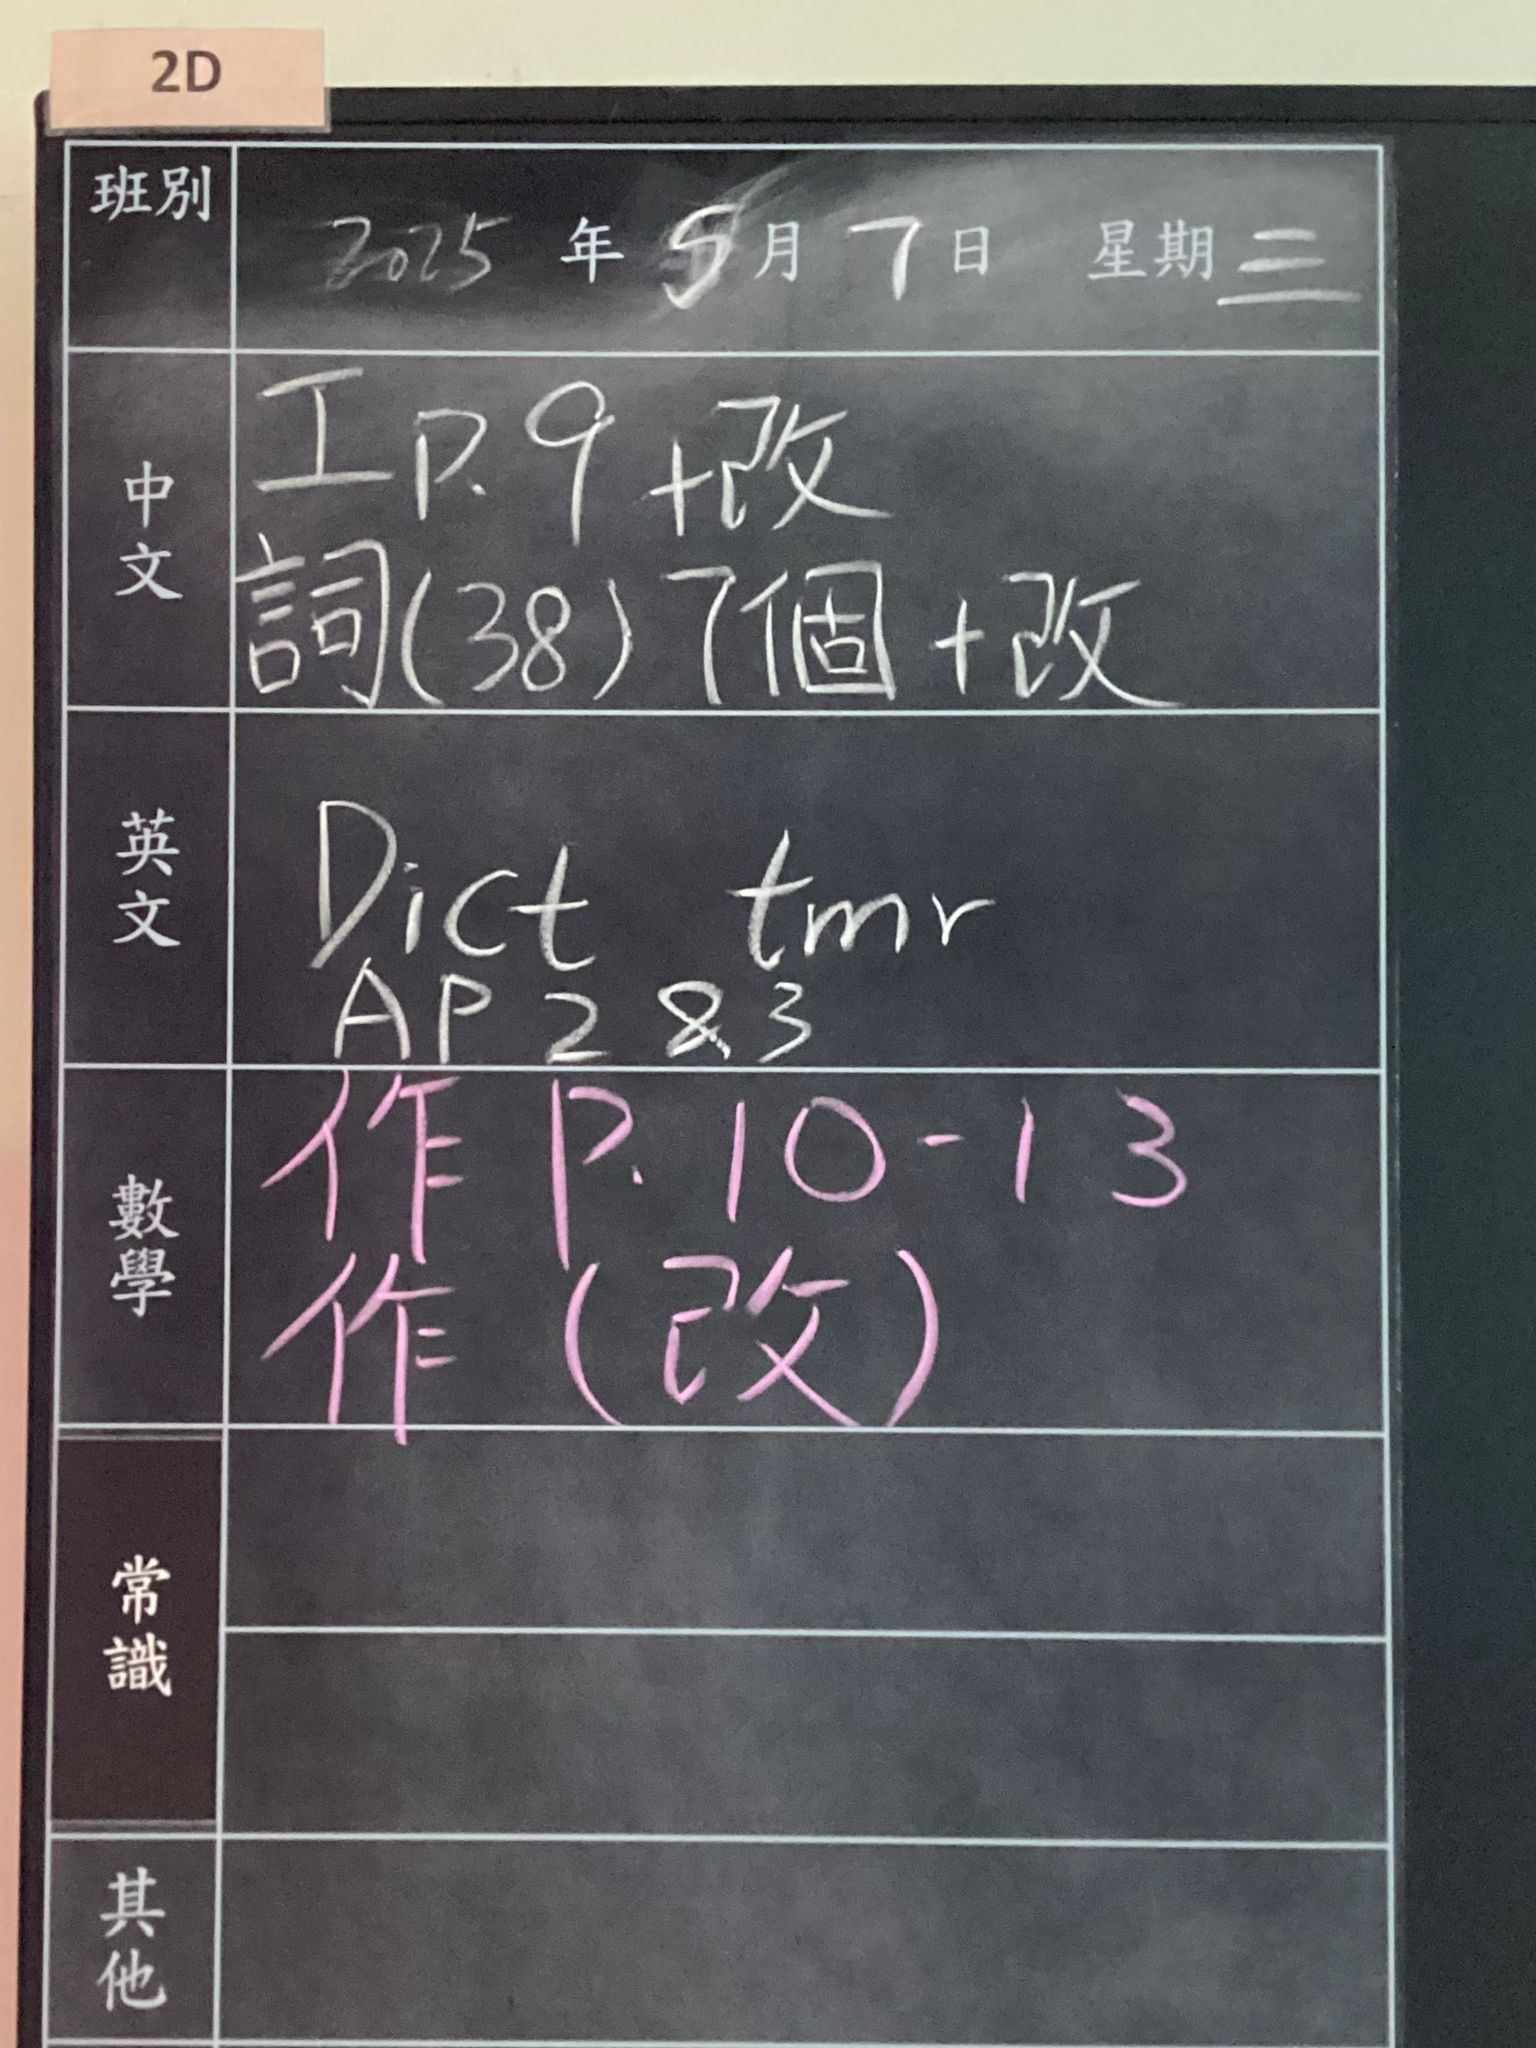 2D
班別
2025 年 5 月 7 日 星期三
中文
工 P. 9 +改
詞(38) 7個 +改
英文
Dict tmr
AP 2 & 3
數學
作 P. 10-13
作 (改)
常識
其他